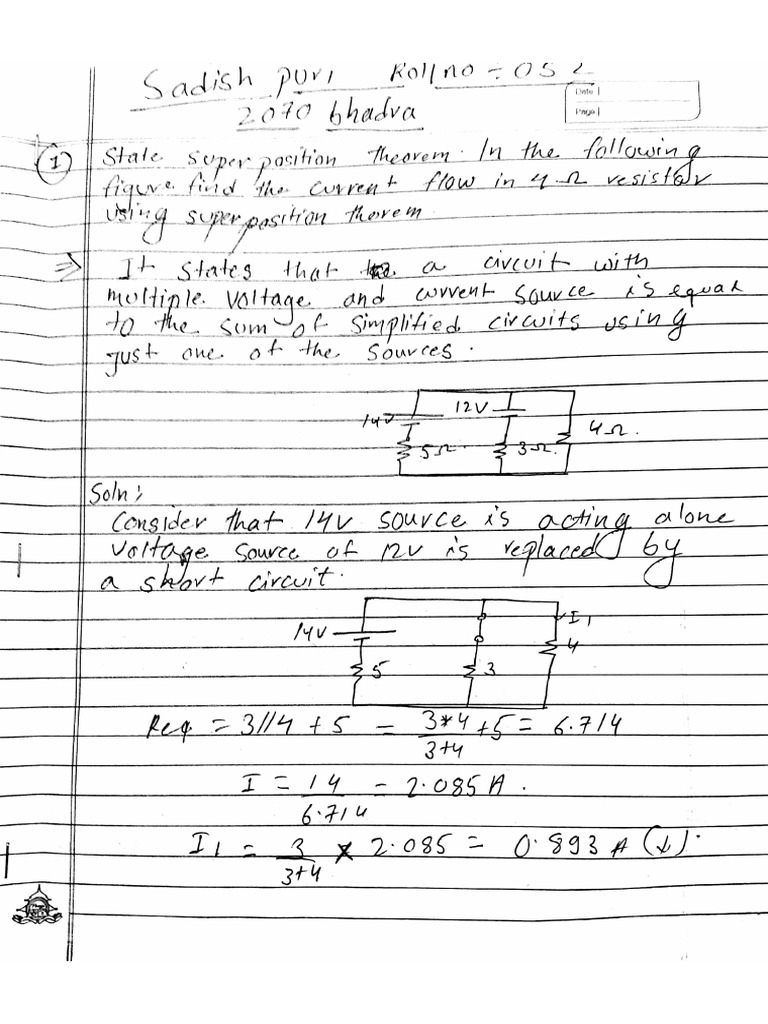 Sadish puri Roll no :- 052
2070 bhadra
Date
Page
① State super position theorem. In the following
figure find the current flow in 4Ω resistor
using super position thorem
⇒ It states that a circuit with
multiple voltage and current source is equal
to the sum of simplified circuits using
just one of the sources.
14V 12V 4Ω.
5Ω 3Ω.
Soln:
Consider that 14v source is acting alone
voltage source of 12v is replaced by
a short circuit.
14V I1
5 3 4
Req = 3//4 + 5 = 3*4/3+4 + 5 = 6.714
I = 14/6.714 = 2.085 A.
I1 = 3/3+4 × 2.085 = 0.893 A (↓).